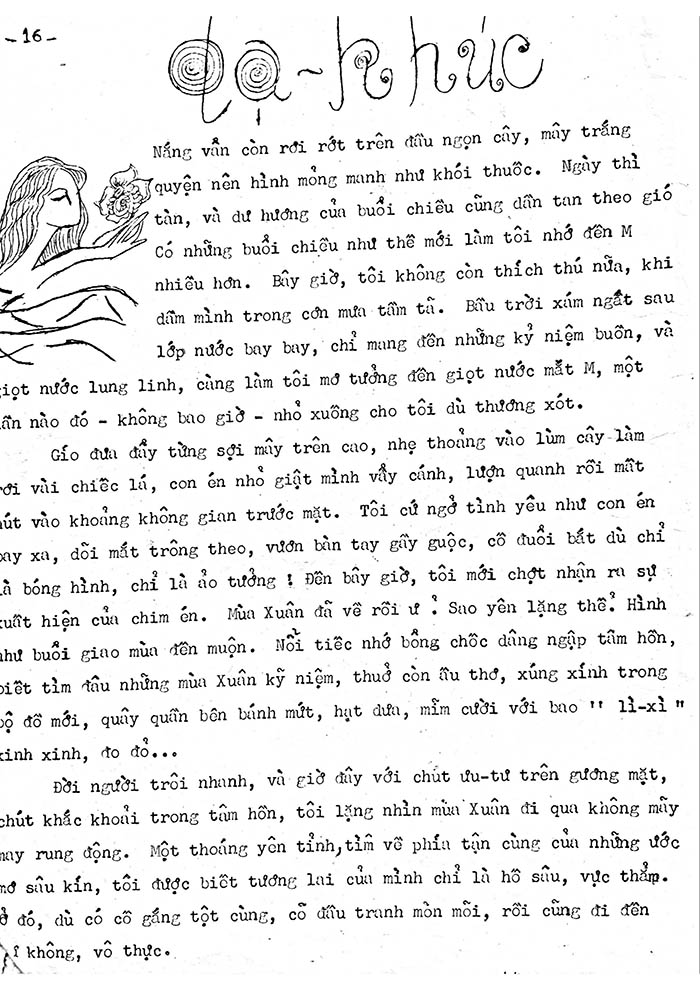 -16-
dạ-khúc
Nắng vẫn còn rơi rớt trên đầu ngọn cây, mây trắng
quyện nên hình mỏng manh như khói thuốc. Ngày thì
tàn, và dư hương của buổi chiều cũng dần tan theo gió
Có những buổi chiều như thế mới làm tôi nhớ đến M
nhiều hơn. Bây giờ, tôi không còn thích thú nữa, khi
dầm mình trong cơn mưa tầm tã. Bầu trời xám ngắt sau
lớp nước bay bay, chỉ mang đến những kỷ niệm buồn, và
giọt nước lung linh, càng làm tôi mơ tưởng đến giọt nước mắt M, một
ần nào đó - không bao giờ - nhỏ xuống cho tôi dù thương xót.
Gío đưa đẩy từng sợi mây trên cao, nhẹ thoảng vào lùm cây làm
rơi vài chiếc lá, con én nhỏ giật mình vẫy cánh, lượn quanh rồi mất
hút vào khoảng không gian trước mặt. Tôi cứ ngở tình yêu như con én
bay xa, dõi mắt trông theo, vươn bàn tay gầy guộc, cố đuổi bắt dù chỉ
là bóng hình, chỉ là ảo tưởng ! Đến bây giờ, tôi mới chợt nhận ra sự
xuất hiện của chim én. Mùa Xuân đã về rồi ư ? Sao yên lặng thế? Hình
như buổi giao mùa đến muộn. Nỗi tiếc nhớ bỗng chốc dâng ngập tâm hồn,
biết tìm đâu những mùa Xuân kỹ niệm, thuở còn ấu thơ, xúng xính trong
bộ đồ mới, quây quần bên bánh mứt, hạt dưa, mỉm cười với bao " lì-xì "
xinh xinh, đo đỏ...
Đời người trôi nhanh, và giờ đây với chút ưu-tư trên gương mặt,
chút khắc khoải trong tâm hồn, tôi lặng nhìn mùa Xuân đi qua không mẩy
may rung động. Một thoáng yên tỉnh, tìm về phía tận cùng của những ước
mơ sâu kín, tôi được biết tương lai của mình chỉ là hố sâu, vực thẳm.
ở đó, dù có cố gắng tột cùng, cố đấu tranh mòn mỏi, rồi cũng đi đến
không, vô thực.